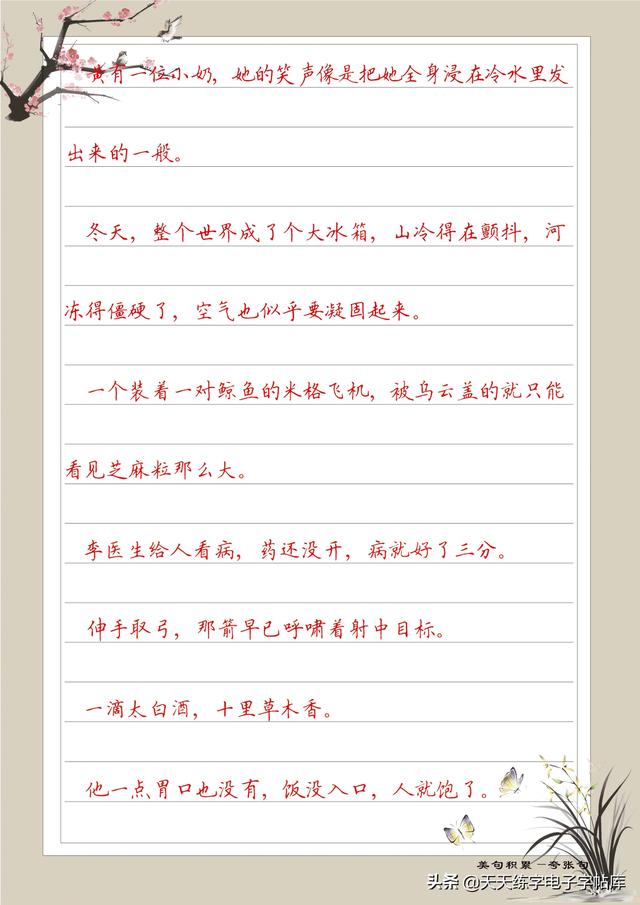 有一位小奶，她的笑声像是把她全身浸在冷水里发
出来的一般。
冬天，整个世界成了个大冰箱，山冷得在颤抖，河
冻得僵硬了，空气也似乎要凝固起来。
一个装着一对鲸鱼的米格飞机，被乌云盖的就只能
看见芝麻粒那么大。
李医生给人看病，药还没开，病就好了三分。
伸手取弓，那箭早已呼啸着射中目标。
一滴太白酒，十里草木香。
他一点胃口也没有，饭没入口，人就饱了。
美句积累—夸张句
头条@天天练字电子字帖库